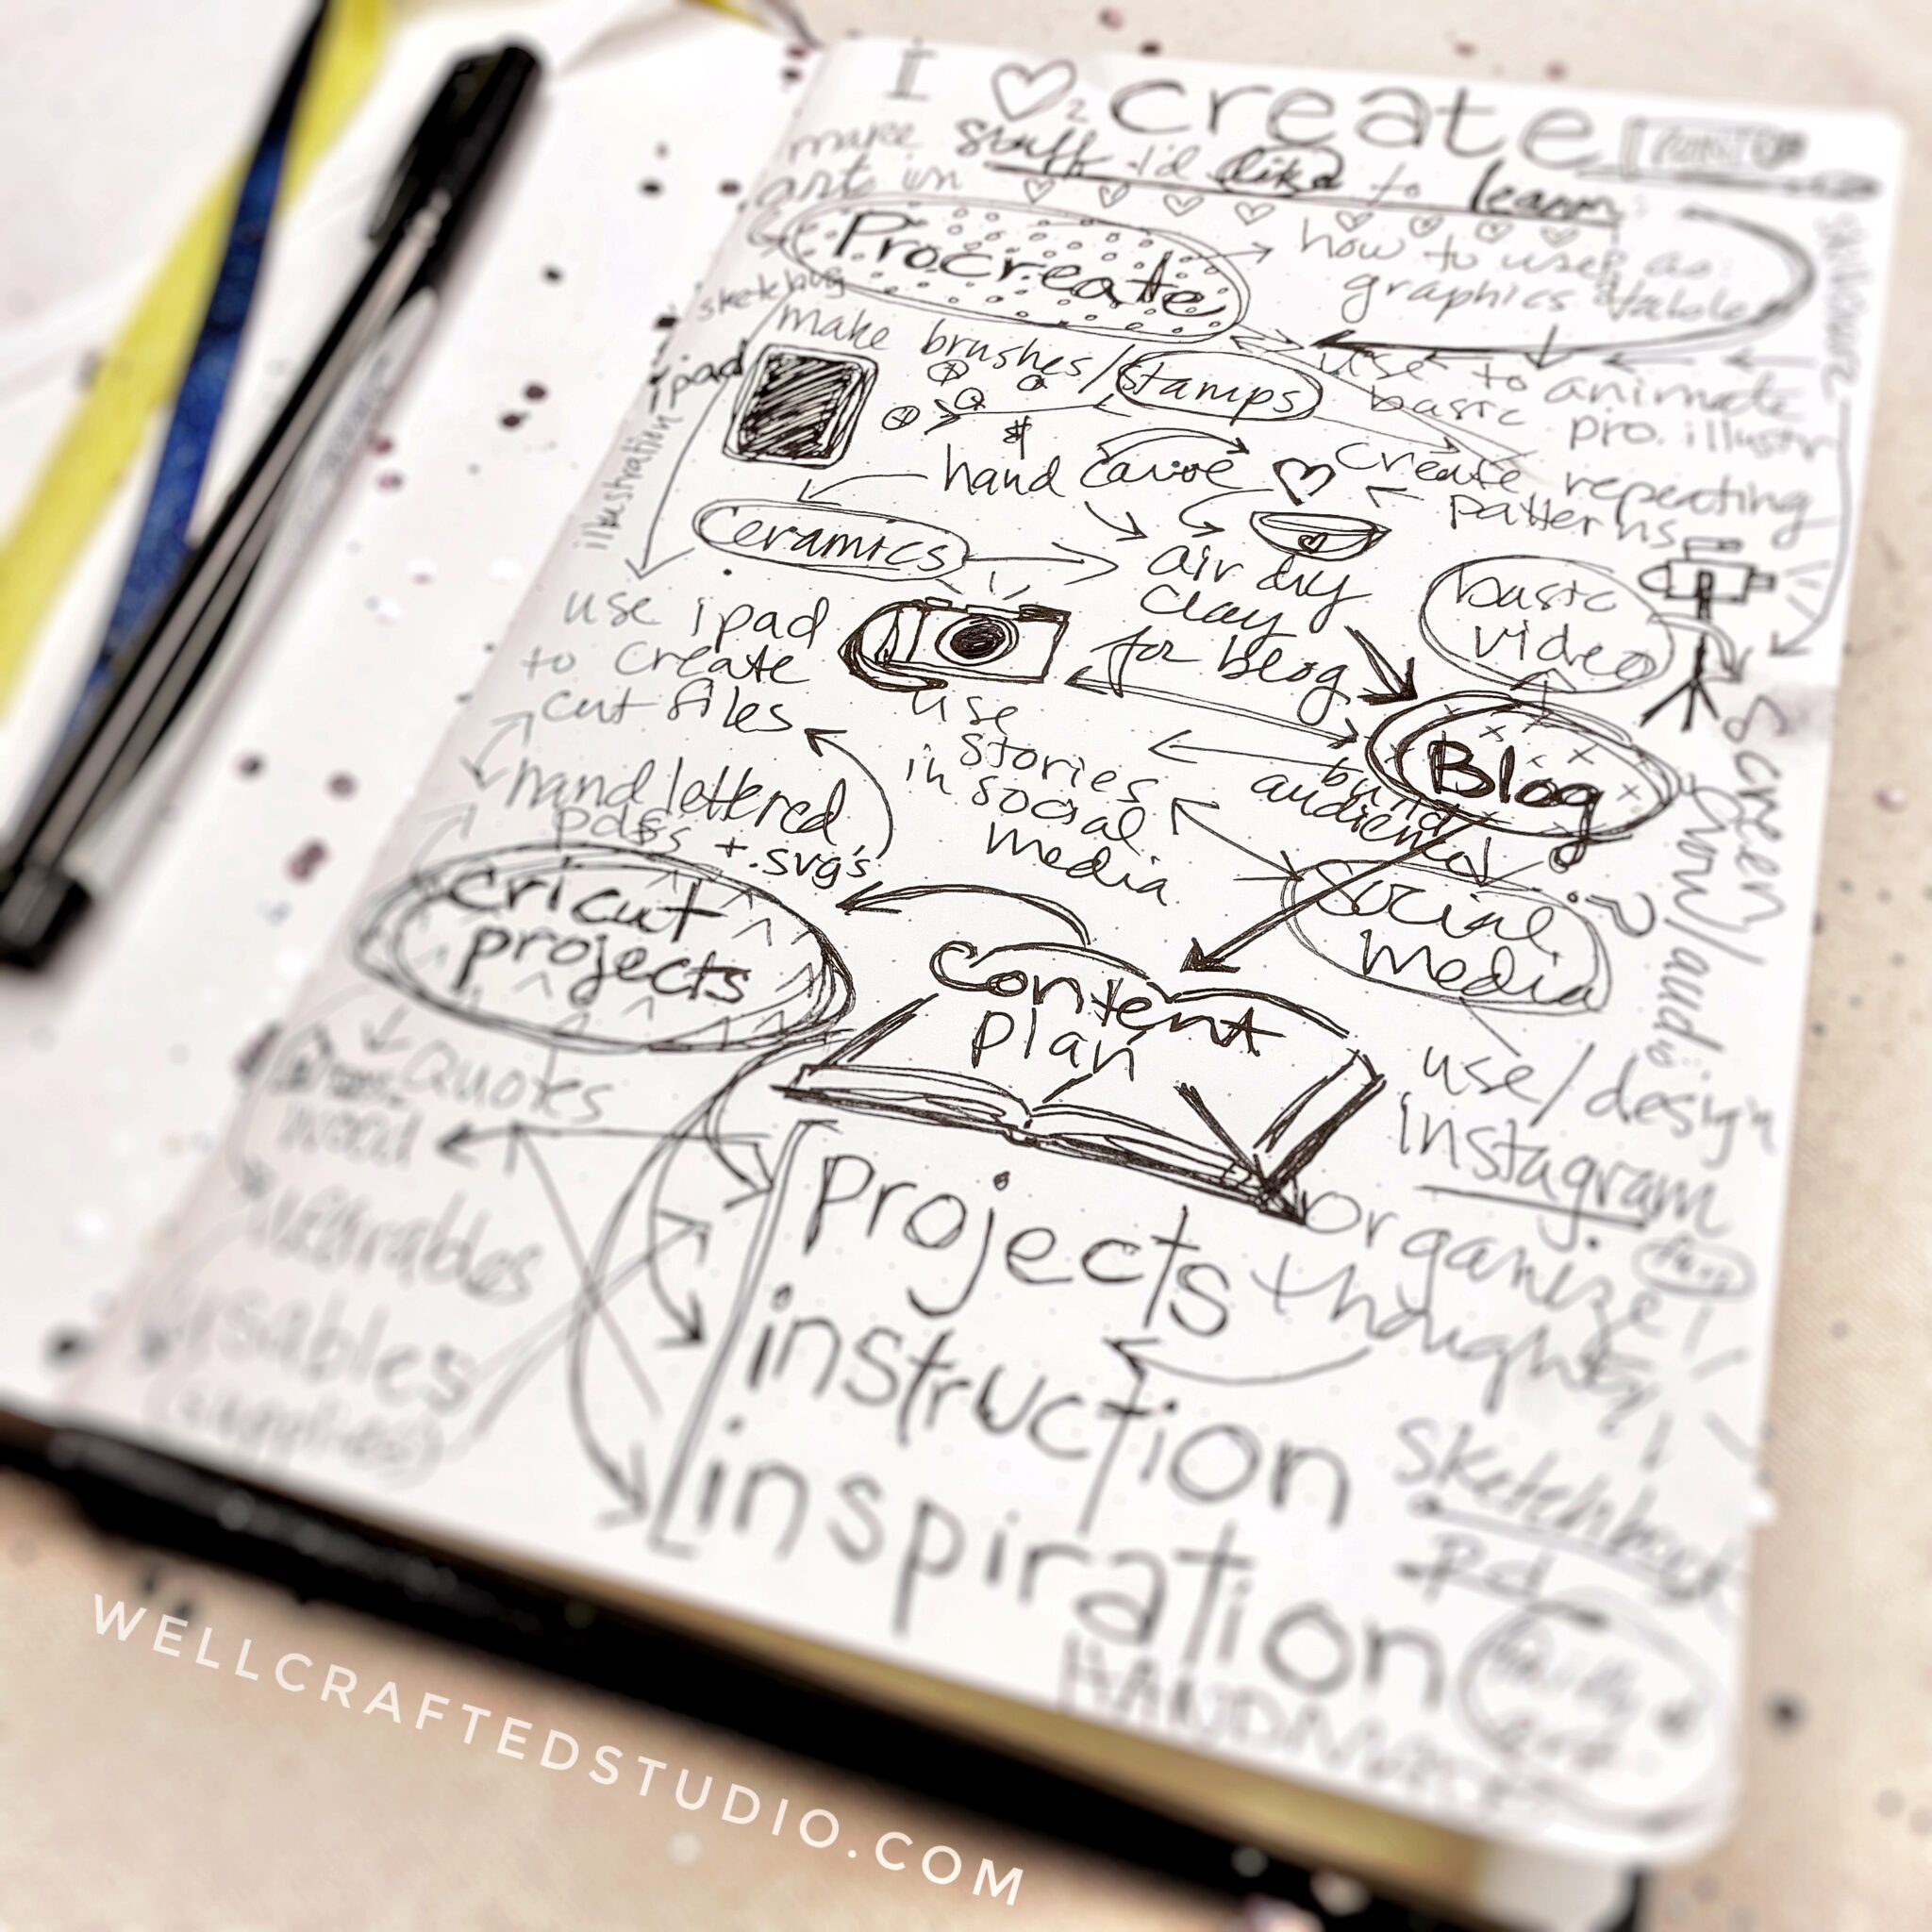 I ♡ 2 create
make
art in
stuff I'd like to learn
Procreate
how to use as
graphics tablet
sketching
make brushes/stamps
ipad
illustration
use to animate
basic pro. illustr
$
hand carve
create repeating
patterns
Ceramics
air dry
clay
for blog
basic
video
use ipad
to create
cut files
use
stories
in social
media
Blog
build
audience
(screen)
/audio
hand lettered
pdfs + .svg's
cricut
projects
Content
plan
social
media
?
use/design
instagram
Quotes
wood
wearables
usables
(supplies)
Projects
instruction
inspiration
organize
thoughts
Sketchbook
Rd
HANDMADE
WELLCRAFTEDSTUDIO.COM